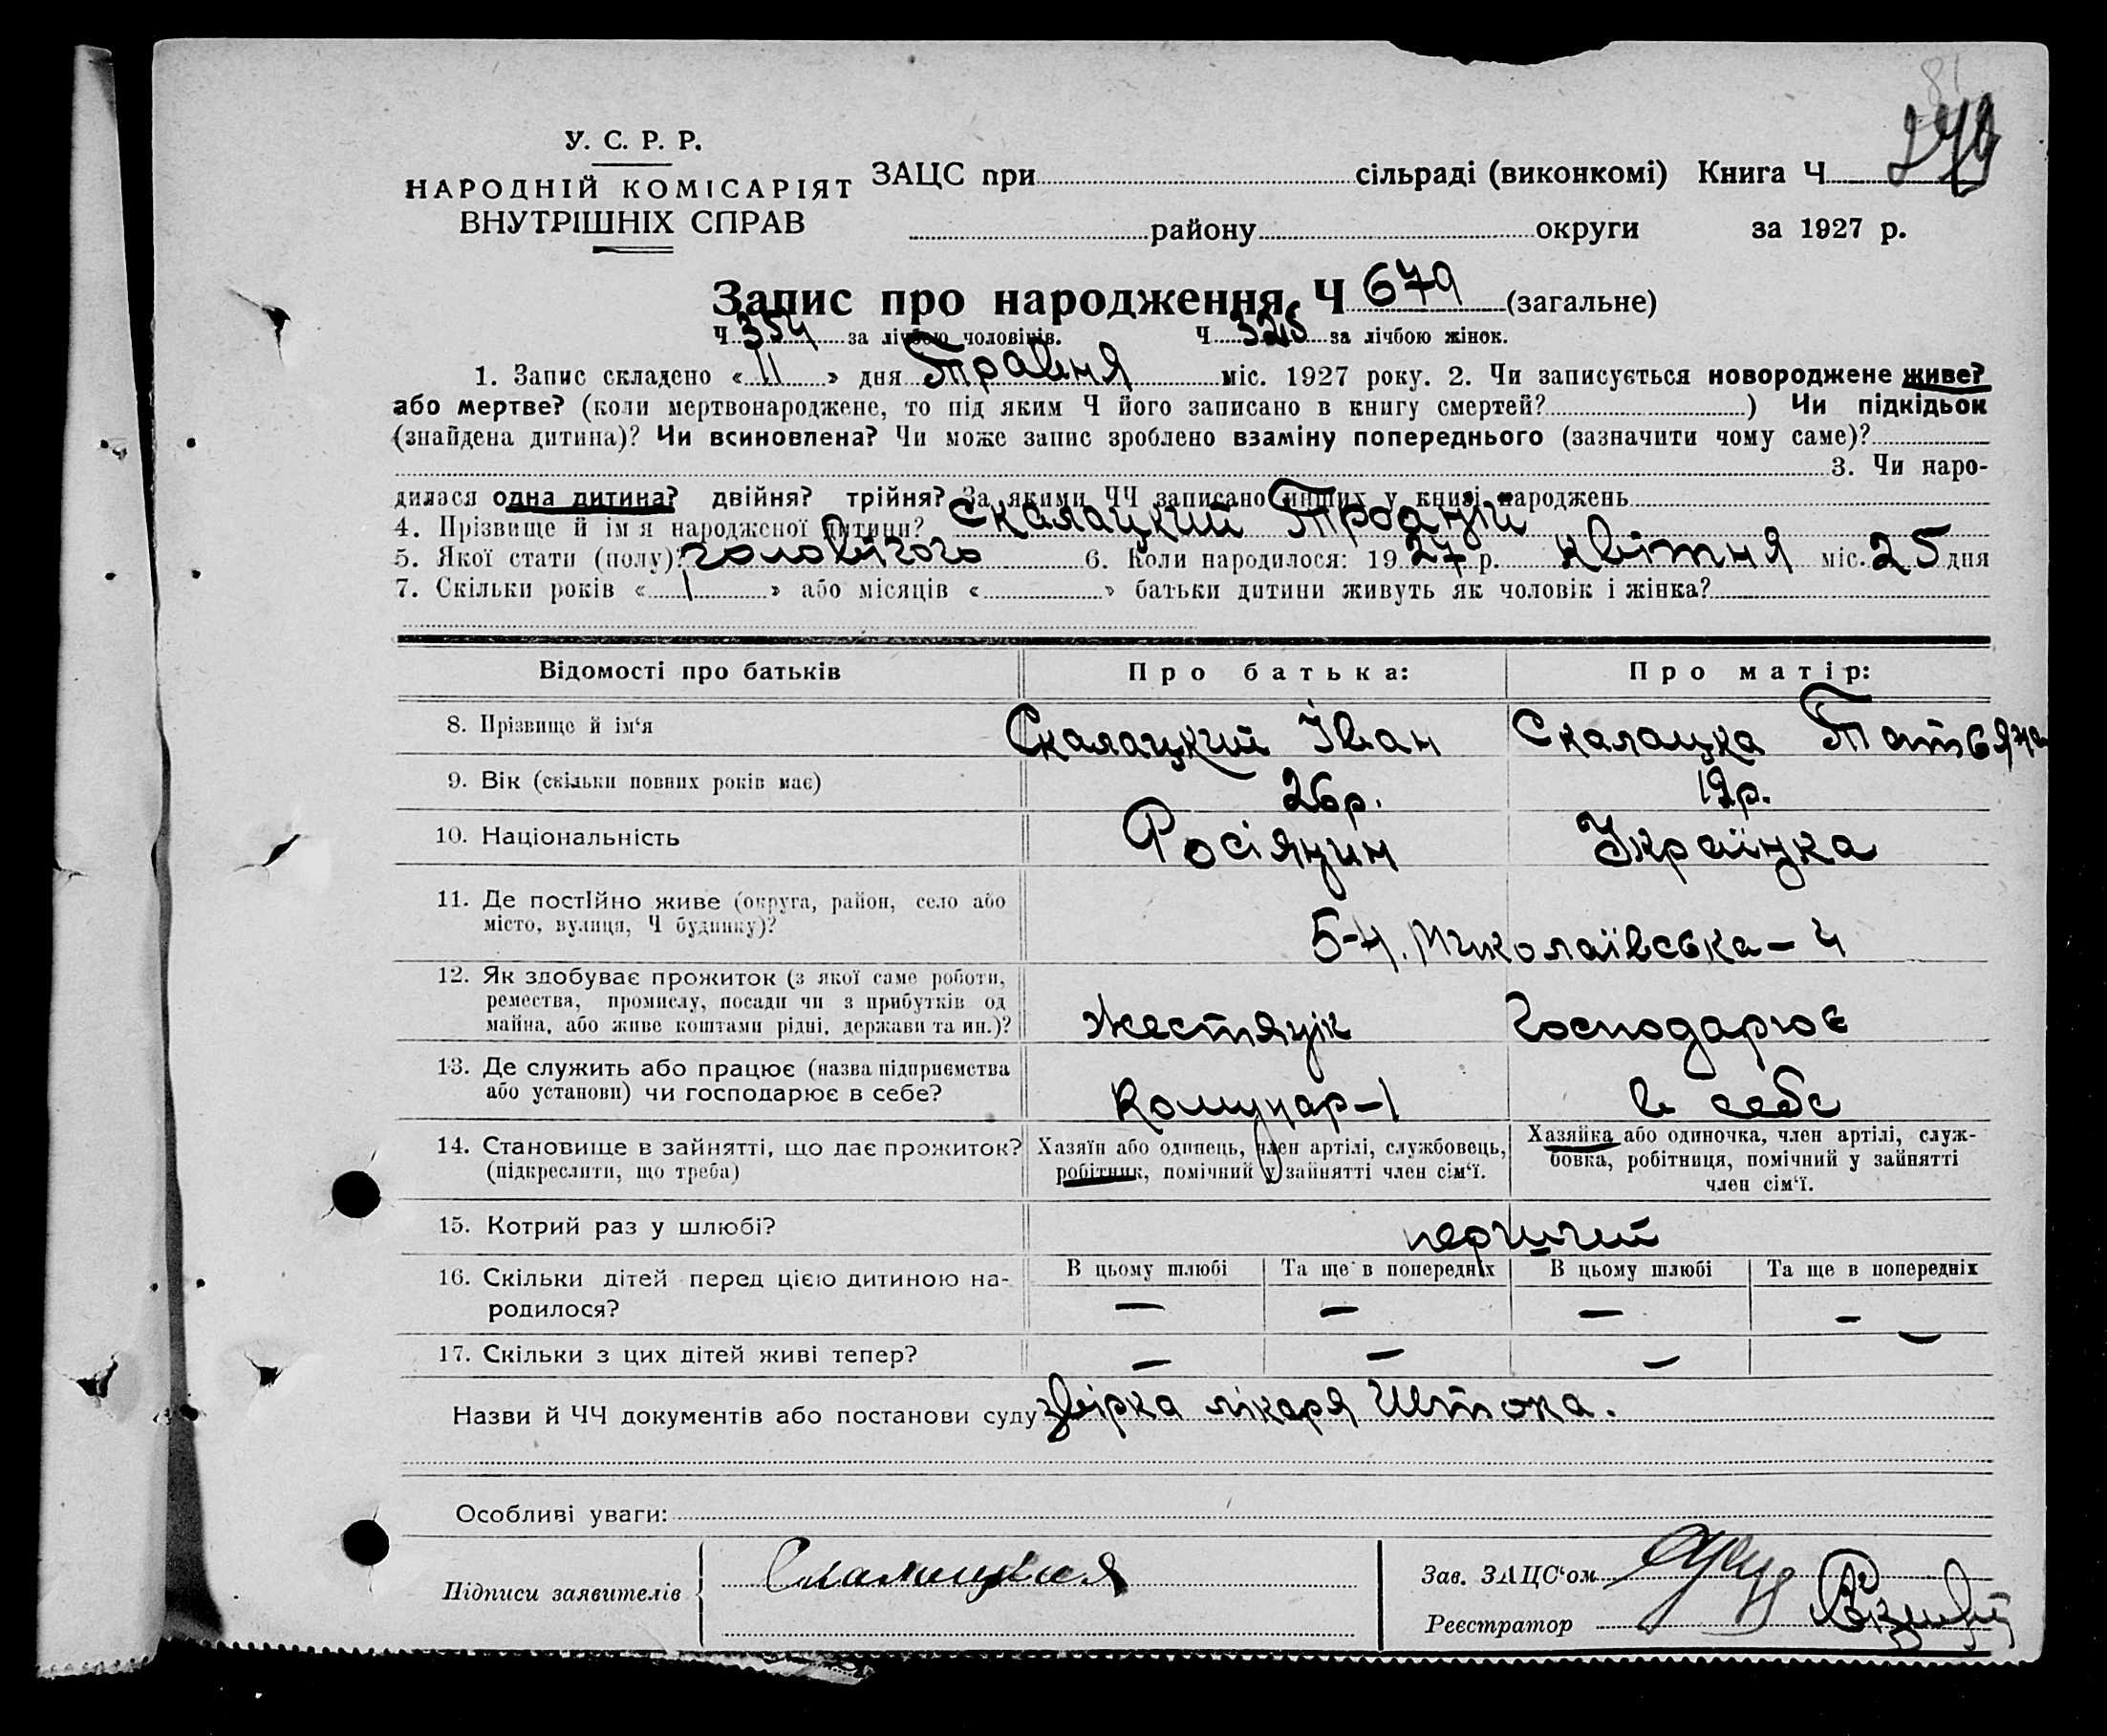 У. С. Р. Р.
НАРОДНІЙ КОМІСАРІЯТ
ВНУТРІШНІХ СПРАВ
ЗАЦС при сільраді (виконкомі) Книга Ч
району округи за 1927 р.
Запис про народження Ч 679 (загальне)
Ч 354 за лічбою чоловіків. Ч 325 за лічбою жінок.
1. Запис складено « 11 » дня Травня міс. 1927 року. 2. Чи записується новороджене живе?
або мертве? (коли мертвонароджене, то під яким Ч його записано в книгу смертей? ) Чи підкідьок
(знайдена дитина)? Чи всиновлена? Чи може запис зроблено взаміну попереднього (зазначити чому саме)?
3. Чи наро-
дилася одна дитина? двійня? трійня? За якими ЧЧ записано инших у книзі народжень
4. Прізвище й ім'я народженої дитини? Скалацкий
5. Якої стати (полу)? чоловічого 6. Коли народилося: 1927 р. квітня міс. 25 дня
7. Скільки років « 1 » або місяців « » батьки дитини живуть як чоловік і жінка?
Відомості про батьків Про батька: Про матір:
8. Прізвище й ім'я Скалацкий Іван Скалацка Татьяна
9. Вік (скільки повних років має) 26р. 19р.
10. Національність Росіянин Українка
11. Де постійно живе (округа, район, село або
місто, вулиця, Ч будинку)? 5-А. Миколаївська – 4
12. Як здобуває прожиток (з якої саме роботи,
ремества, промислу, посади чи з прибутків од
майна, або живе коштами рідні, держави та ин.)? Жестянік Господарює
13. Де служить або працює (назва підприємства
або установи) чи господарює в себе? Комунар-1 в себе
14. Становище в зайнятті, що дає прожиток?
(підкреслити, що треба)
Хазяїн або одинець, член артілі, службовець,
робітник, помічний у зайнятті член сім'ї.
Хазяйка або одиночка, член артілі, служ-
бовка, робітниця, помічний у зайнятті
член сім'ї.
15. Котрий раз у шлюбі? перший
16. Скільки дітей перед цією дитиною на-
родилося?
В цьому шлюбі Та ще в попередніх В цьому шлюбі Та ще в попередніх
– – – –
17. Скільки з цих дітей живі тепер? – – – –
Назви й ЧЧ документів або постанови суду звірка лікаря Штока.
Особливі уваги:
Підписи заявителів
Зав. ЗАЦС'ом
Реєстратор